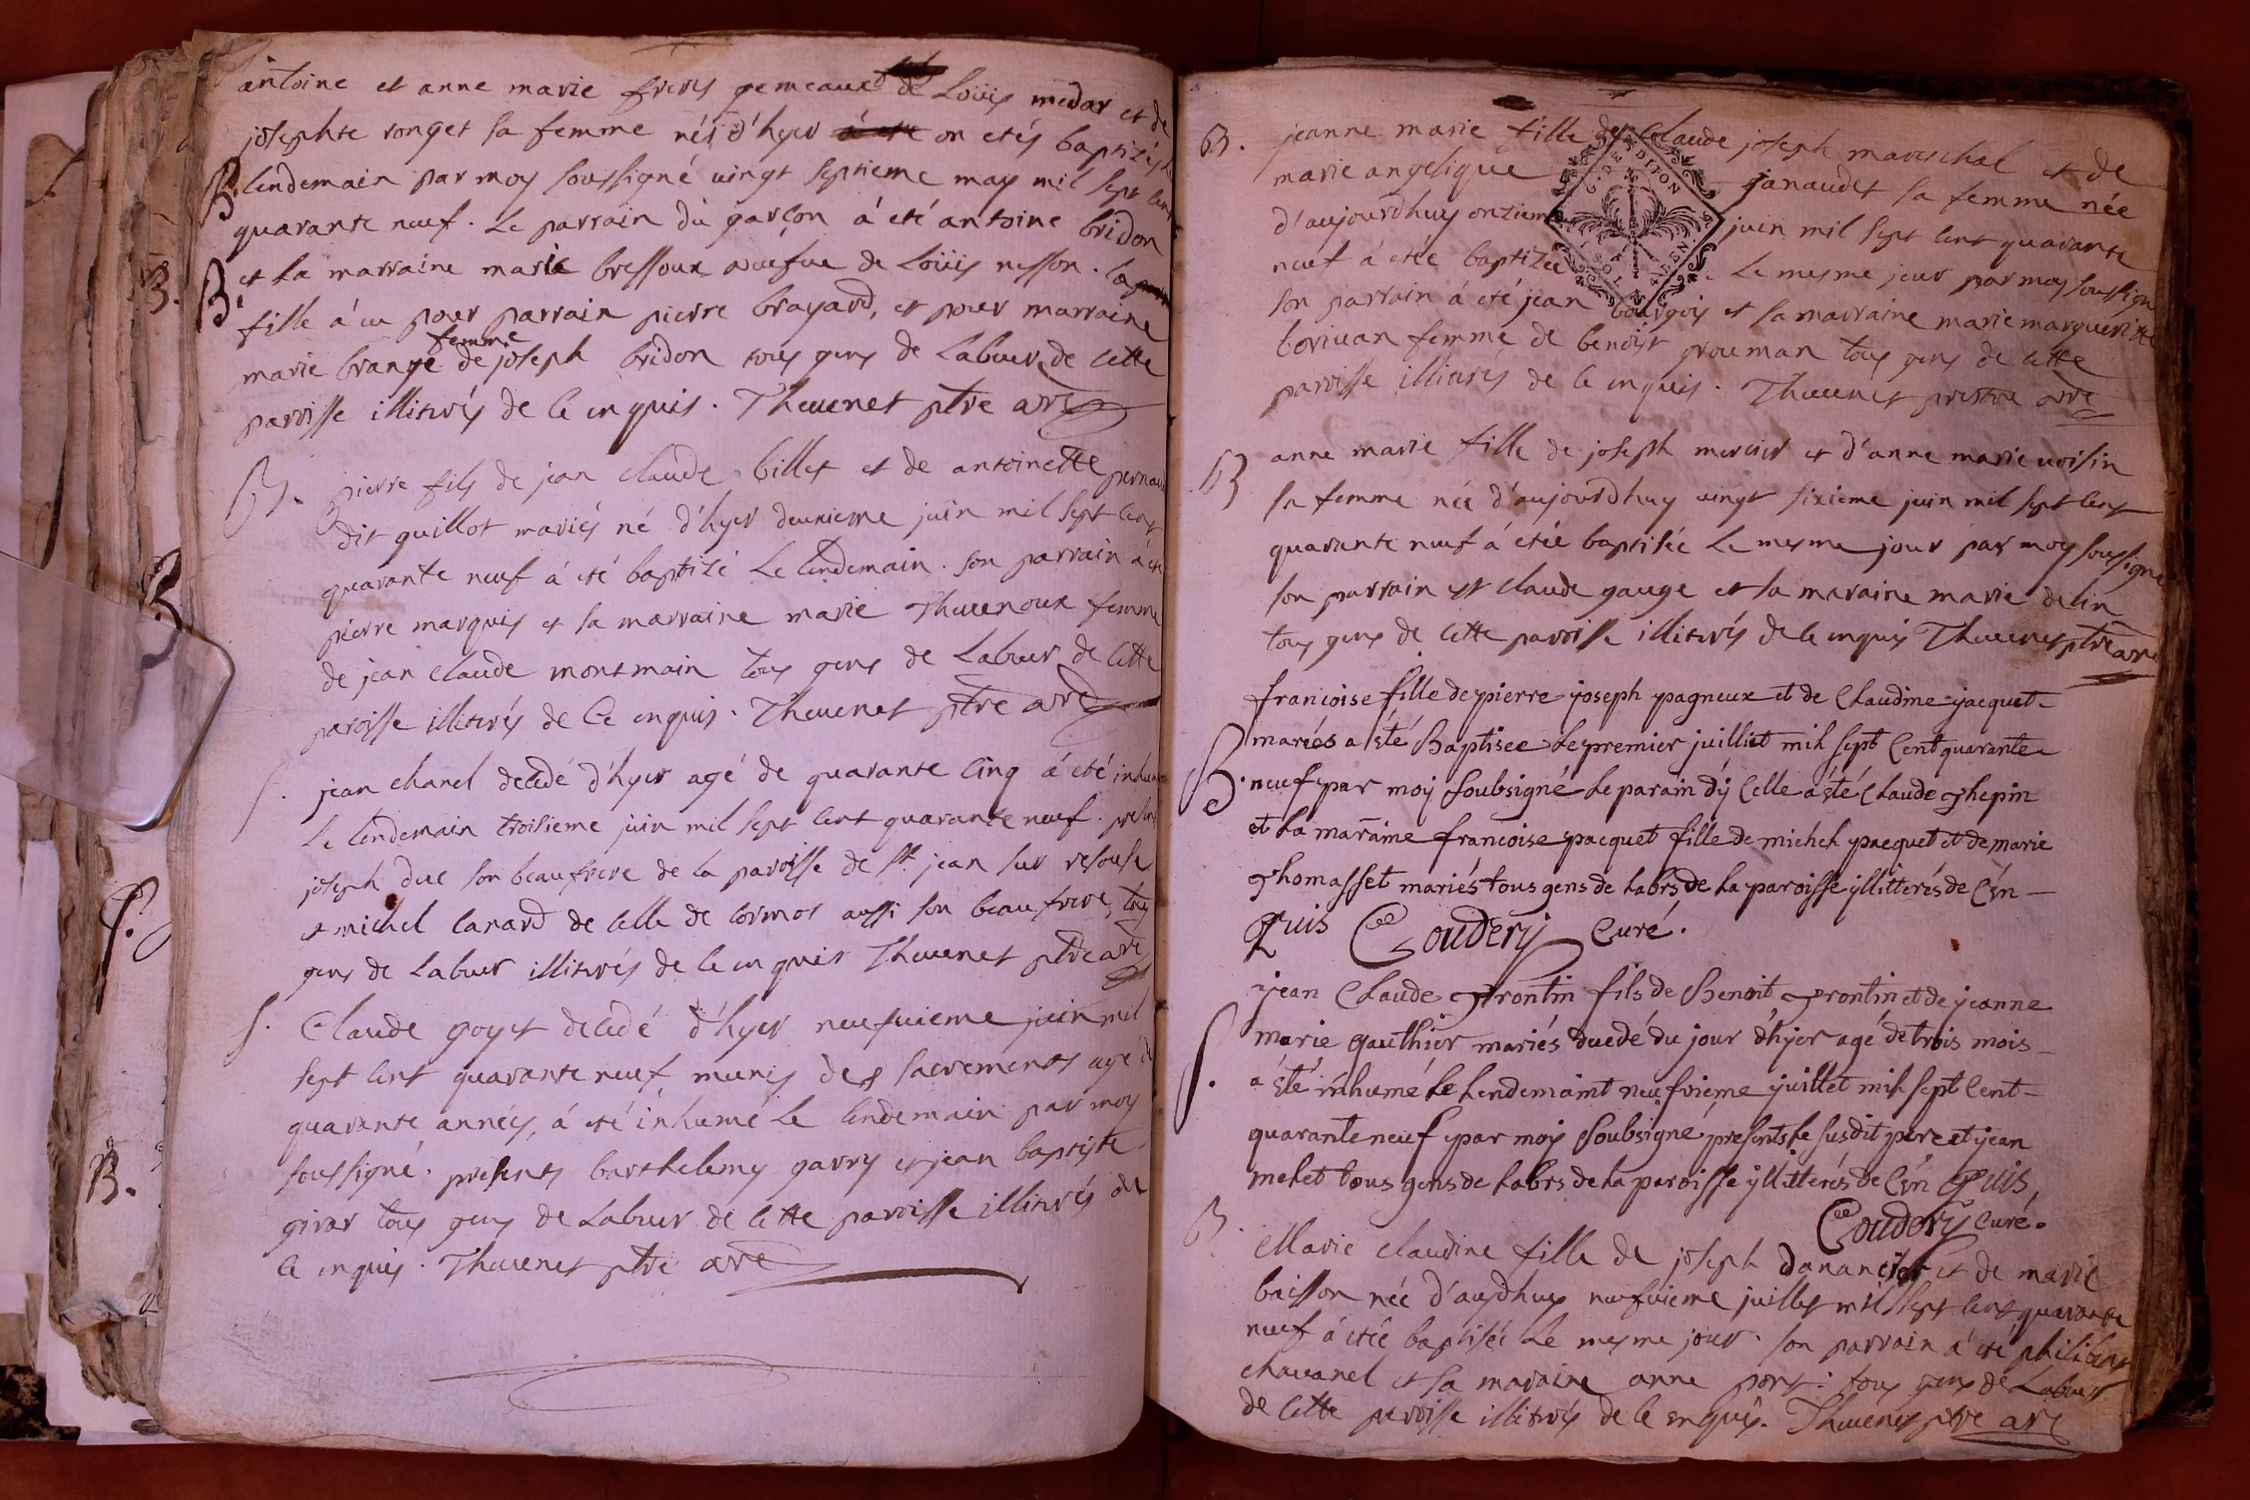 antoine et anne marie freres gemeaux de Loüis medar et de
josephte ronget sa femme nés d'hyer on etés baptizés
B. lendemain par moy soussigné vingt septieme may mil sept cent
quarante neuf. Le parrain du garçon á eté antoine bridon
B. et la marraine marie bressoux veufue de Loüis nesson. la
fille á eu pour parrain pierre brayard, et pour marraine
femme
marie brange de joseph bridon tous gens de Labeur de cette
paroisse illiterés de ce enquis. Theuenet ptre
B. pierre fils de jean claude billet et de antoinette
dit guillot mariés né d'hyer deuxieme juin mil sept cent
quarante neuf á eté baptizé Le lendemain. son parrain á eté
pierre marquis et sa marraine marie Theuenoux femme
de jean claude montmain tous gens de Labeur de cette
paroisse illiterés de Ce enquis. Theuenet ptre
S. jean chanel decedé d'hyer agé de quarante Cinq á eté
le lendemain troisieme juin mil sept cent quarante neuf.
joseph duc son beaufrere de la paroisse de St. jean sur resouse
et michel canard de celle de cormos aussi son beau frere, tous
gens de Labeur illiterés de ce enquis Theuenet ptre
S. Claude goyet decedé d'hyer neufuieme juin mil
sept cent quarante neuf munis des sacrements agé de
quarante années, á eté inhumé Le lendemain par moy
soussigné. presents barthelemy garry et jean baptiste
girar tous gens de Labeur de cette paroisse illiterés de
ce enquis. Theuenet ptre
B. jeanne marie fille de Claude joseph mareschal et de
marie angelique janaudet sa femme née
d'aujourdhuy onzieme juin mil sept cent quarante
neuf á etée baptizée Le mesme jour par moy soussigné
son parrain á eté jean bourgois et sa marraine marie marguerite
femme de benoist tous gens de cette
paroisse illiterés de ce enquis. Theuenet prestre
B anne marie fille de joseph mercier et d'anne marie uoisin
sa femme née d'aujourdhuy uingt sixieme juin mil sept cent
quarante neuf á etée baptisée Le mesme jour par moy soussigné
son parrain est claude gauge et sa maraine marie delin
tous gens de cette paroisse illiterés de ce enquis Theuenet ptre
francoise fille de pierre joseph pagneux et de Claudine jacquet
mariés a été Baptisee Le premier juilliet mil sept Cent quarante
B. neuf par moy Soubsigné Le parain d'y Celle a été Claude Thepin
et La maraine francoise pacquet fille de michel pacquet et de marie
Thomasset mariés tous gens de Labrs de La paroisse yllitterés de C'én
Quis Coudery Curé.
jean Claude Frontin fils de Benoit Frontin et de jeanne
marie Gauthier mariés ducdé du jour d'hyer agé de trois mois
S. a été inhumé le Lendemaint neufvieme juillet mil sept Cent
quarante neuf par moy Soubsigné, presents le susdit pere et jean
melet tous gens de Labrs de La paroisse yllitterés de C'én Quis,
Coudery Curé.
B. Marie claudine fille de joseph et de marie
buisson née d'aujdhuy neufuieme juillet mil sept cent quarante
neuf á etée baptisée Le mesme jour. son parrain á eté philibert
chauanel et sa maraine anne pont. tous gens de Labeur
de cette paroisse illiterés de ce enquis. Theuenet ptre